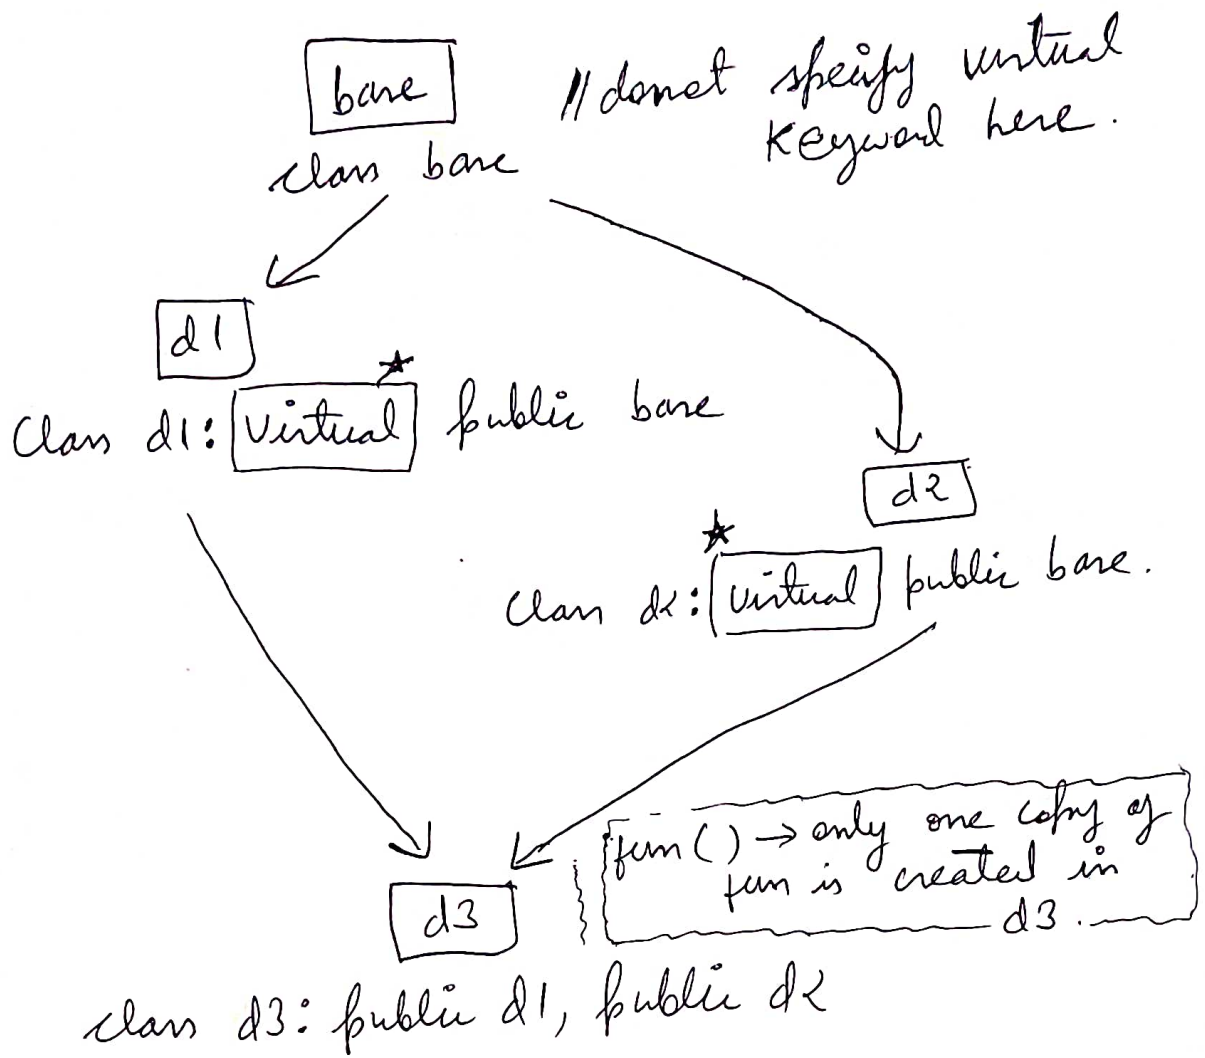 base
//donot specify virtual
keyword here.
class base
d1
class d1: virtual public base
d2
class d2: virtual public base.
fun() → only one copy of
fun is created in
d3.
d3
class d3: public d1, public d2